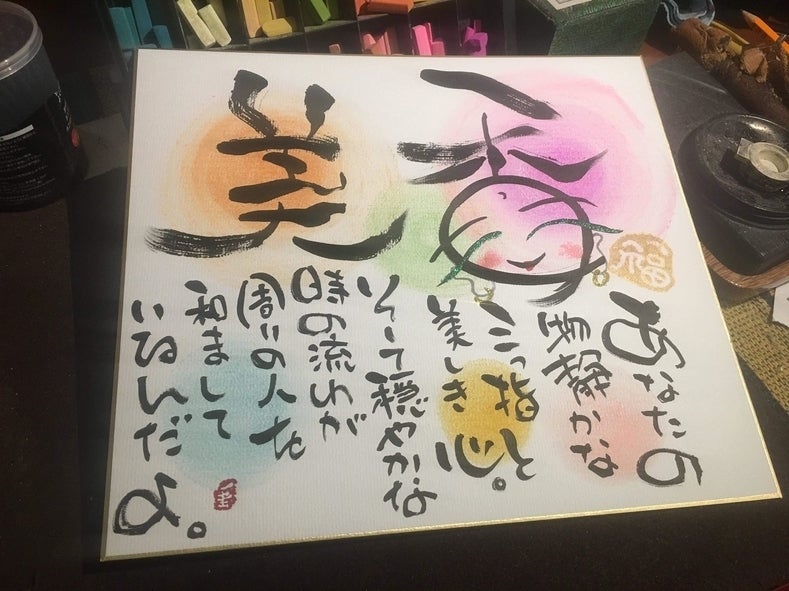 香美
福
あなたの
物静かな
三つ指と
美しき心。
そして穏やかな
時の流れが
周りの人を
和まして
いるんだよ。